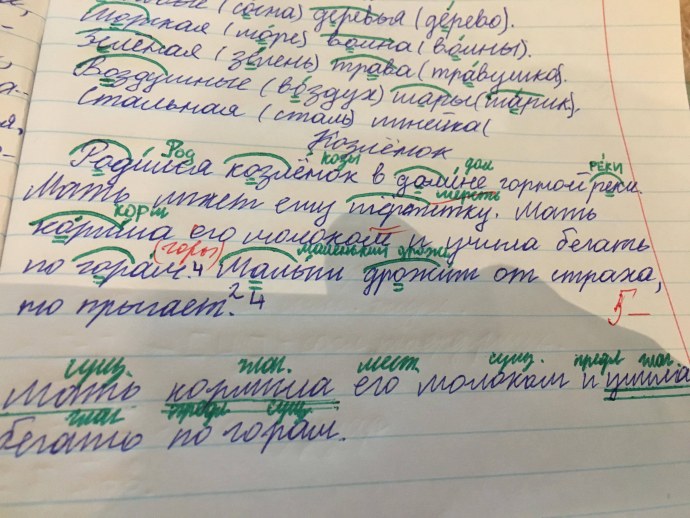 (сосна) деревья (дерево).
Морская (море) волна (волны).
Зелёная (зелень) трава (травушка).
Воздушные (воздух) шары (шарик).
Стальная (сталь) линейка (
Козлёнок
Род козы дол реки
Родился козлёнок в долине горной реки.
шерсть
Мать лижет ему шёрстку. Мать
корм
кормила его молоком и учила бегать
(горы) маленький дрожь
по горам.4 Малыш дрожит от страха,
то прыгает.2 4
5-
сущ. глаг. мест. сущ. предл глаг.
Мать кормила его молоком и учила
глаг. предл сущ.
бегать по горам.